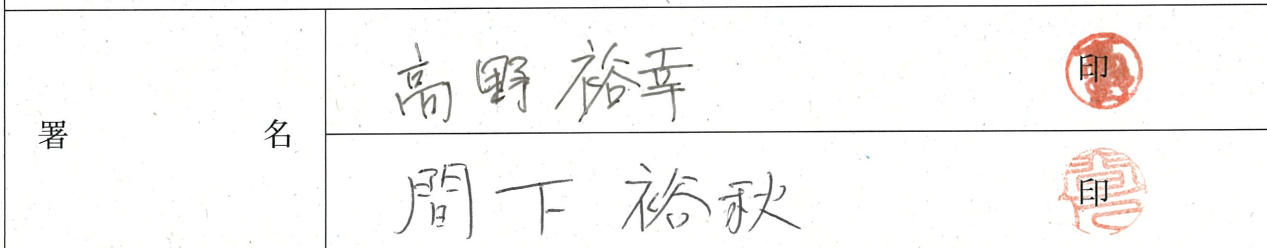 署名
高野裕幸 印
間下裕秋 印